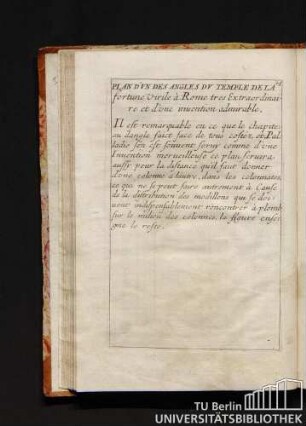 PLAN D'VN DES ANGLES DV TEMPLE DE LA
fortune Virile à Rome tres Extraordinai
re et d'une invention admirable.
Il est remarquable en ce que le chapite
au d'angle faict face de tous costez et Pal
ladio s'en est souvent servy comme d'une
Invention merveilleuse ce plan servira
aussy pour la distance qu'il faut donner
d'une colonne a l'autre, dans les colonnates
ce qui ne se peut faire autrement à Cause
de la distribution des modillons qui se doi
vent indispensablement rencontrer à plomb
sur le milieu des colonnes, la figure ensei
gne le reste.
TU Berlin
UNIVERSITÄTSBIBLIOTHEK